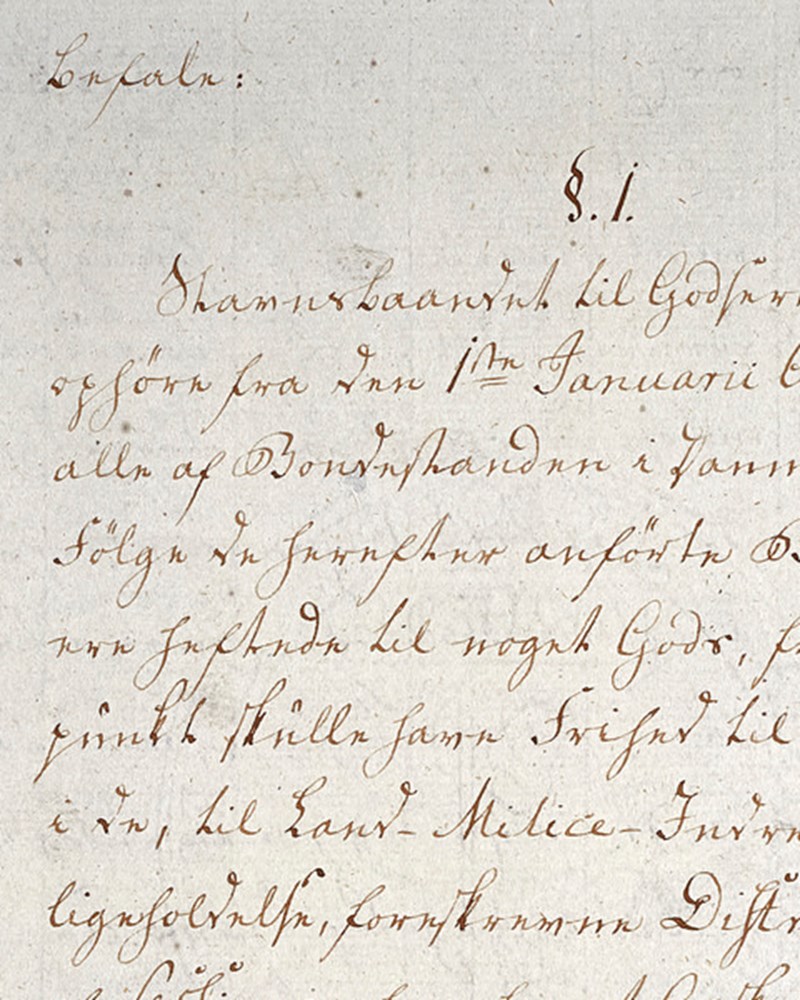 befale:
§. 1.
Stavnsbaandet til Godser
ophöre fra den 1ste Januarii
alle af Bondestanden i Danm
Fölge de herefter anförte B
ere heftede til noget Gods, fr
punkt skulle have Frihed til
i de, til Land-Milice-Indre
ligeholdelse, foreskrevne Distr